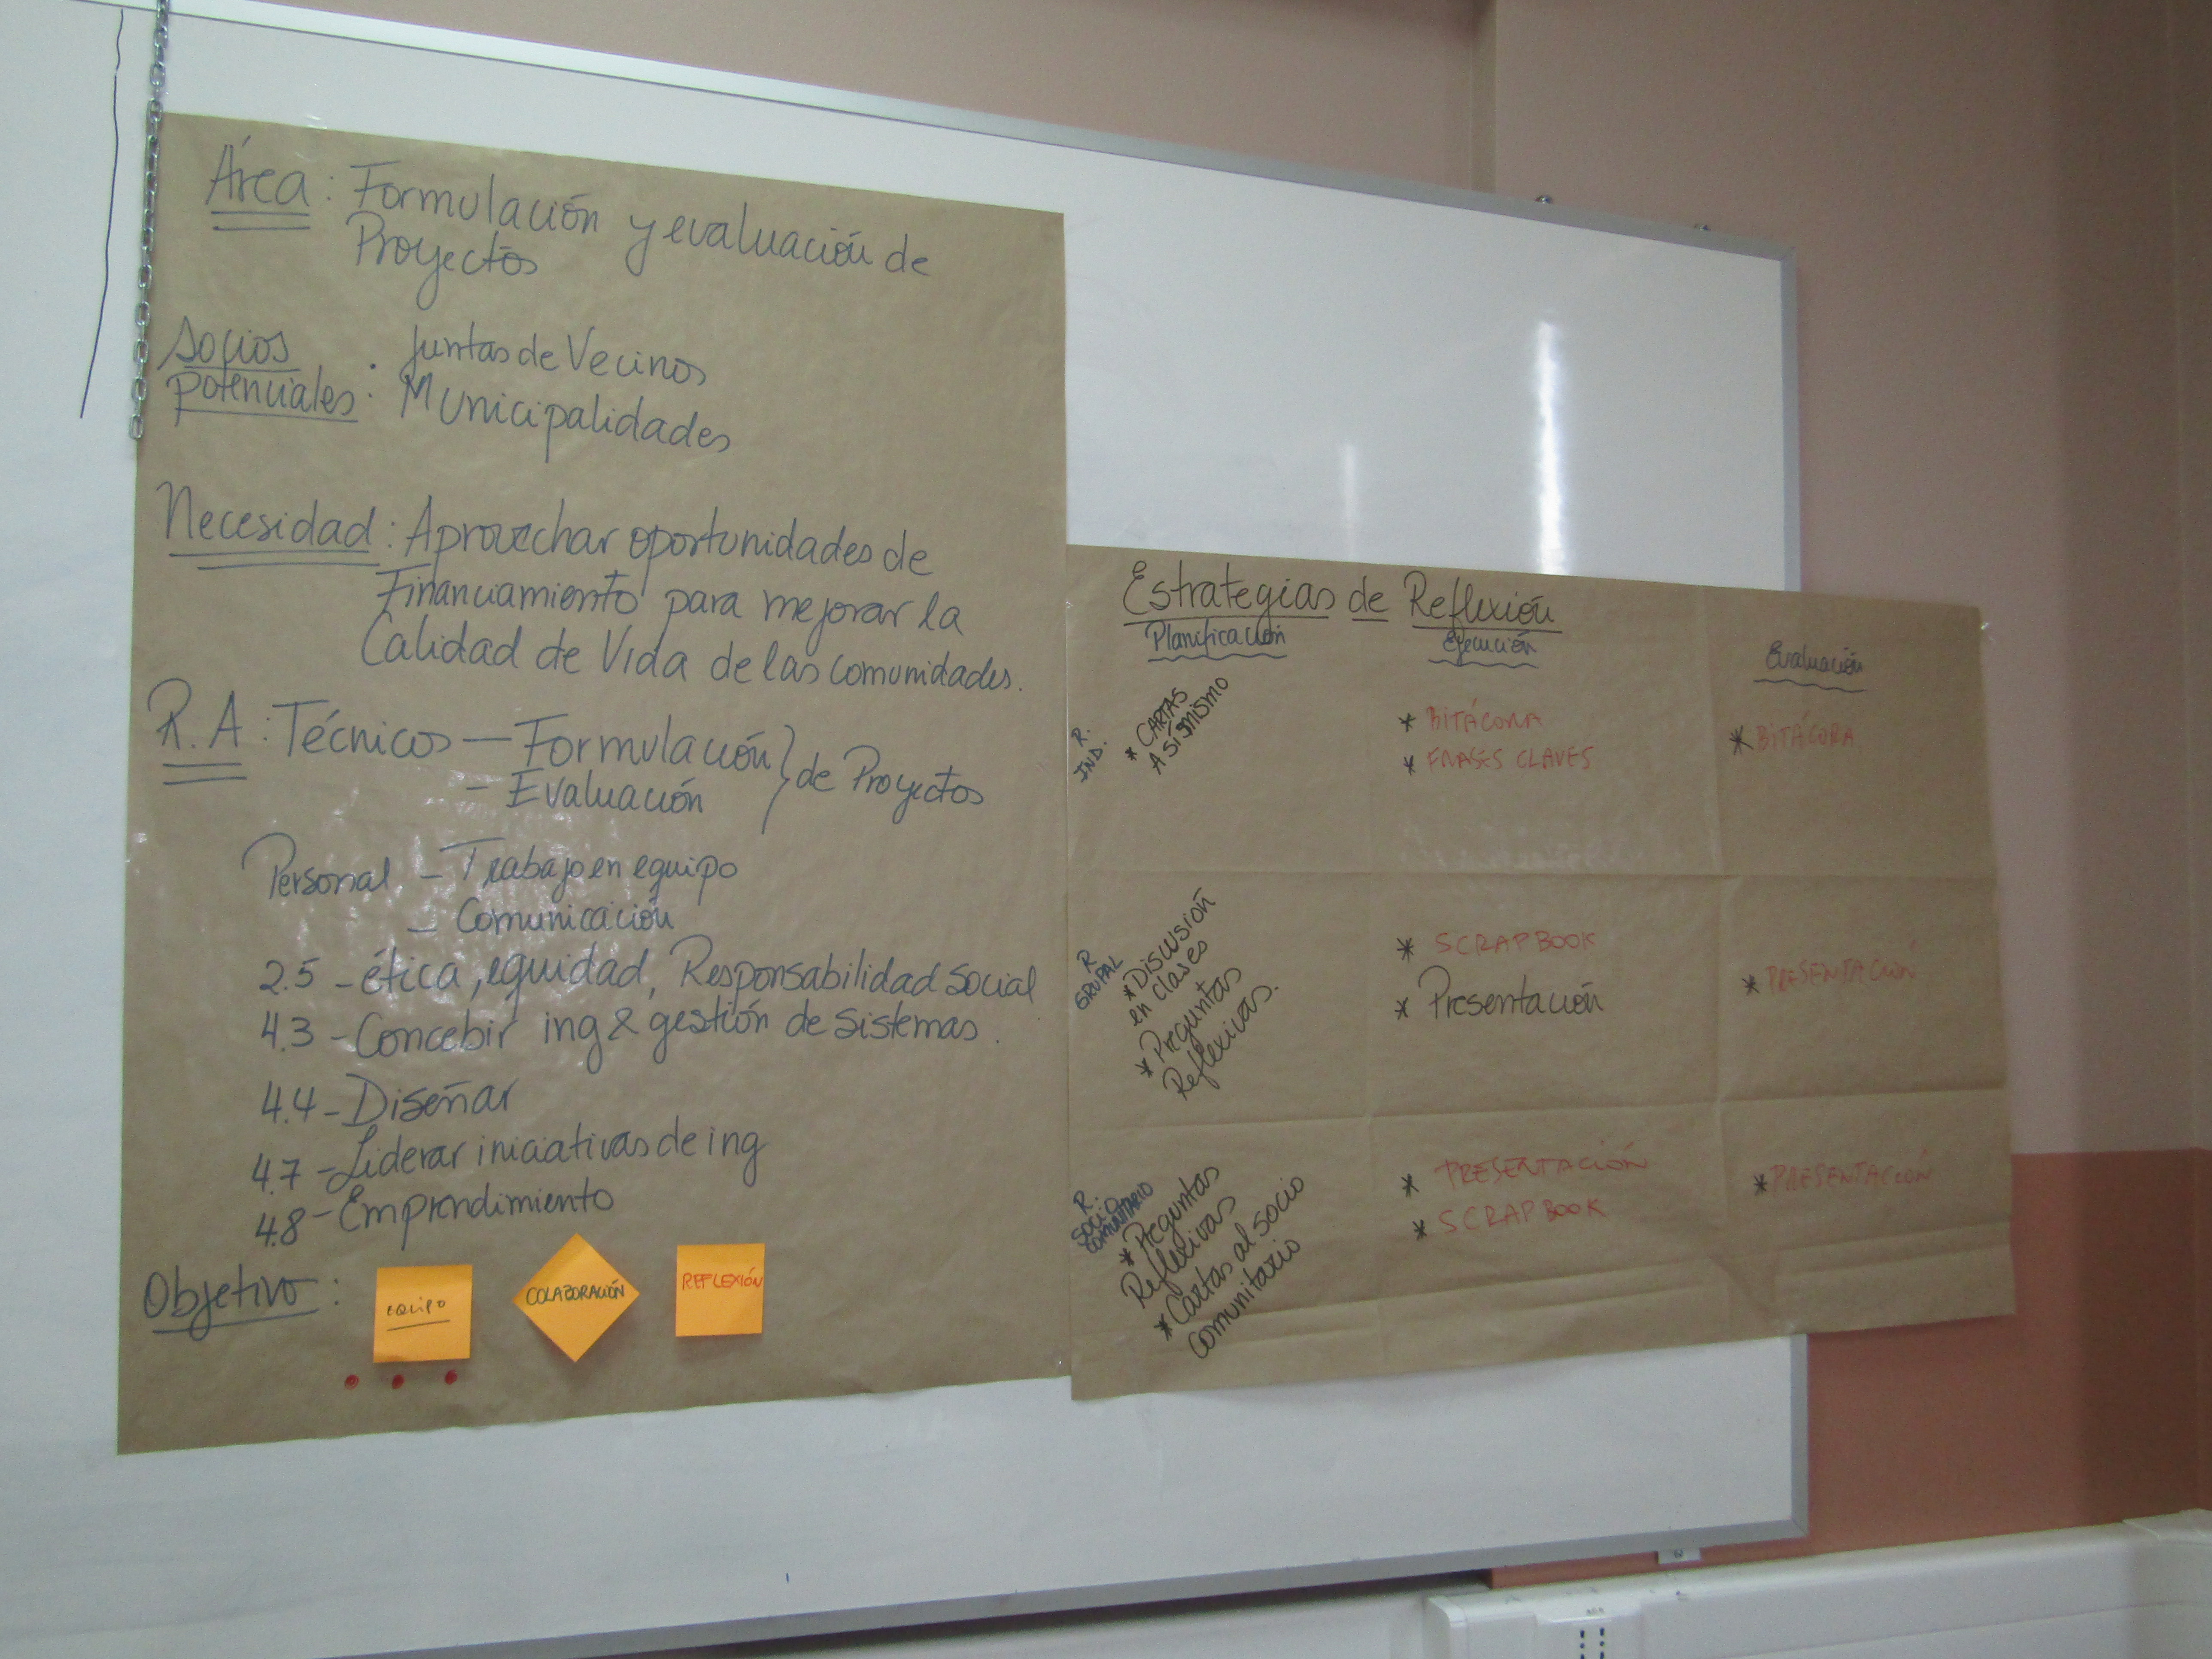 Área: Formulación y evaluación de
Proyectos
Socios
potenciales: Juntas de Vecinos
Municipalidades
Necesidad: Aprovechar oportunidades de
Financiamiento para mejorar la
Calidad de Vida de las comunidades.
R.A: Técnicos — Formulación } de Proyectos
- Evaluación
Personal - Trabajo en equipo
- Comunicación
2.5 - ética, equidad, Responsabilidad Social
4.3 - Concebir ing & gestión de Sistemas.
4.4 - Diseñar
4.7 - Liderar iniciativas de ing
4.8 - Emprendimiento
Objetivo:
EQUIPO
COLABORACIÓN
REFLEXIÓN
Estrategias de Reflexión
Planificación
Ejecución
Evaluación
R.
IND.
* CARTAS
A SÍ MISMO
* BITÁCORA
* FRASES CLAVES
* BITÁCORA
R
GRUPAL
* Discusión
en clases
* Preguntas
Reflexivas.
* SCRAPBOOK
* Presentación
* PRESENTACIÓN
R.
SOCIO
COMUNITARIO
* Preguntas
Reflexivas
* Cartas al socio
comunitario
* PRESENTACIÓN
* SCRAPBOOK
* PRESENTACIÓN